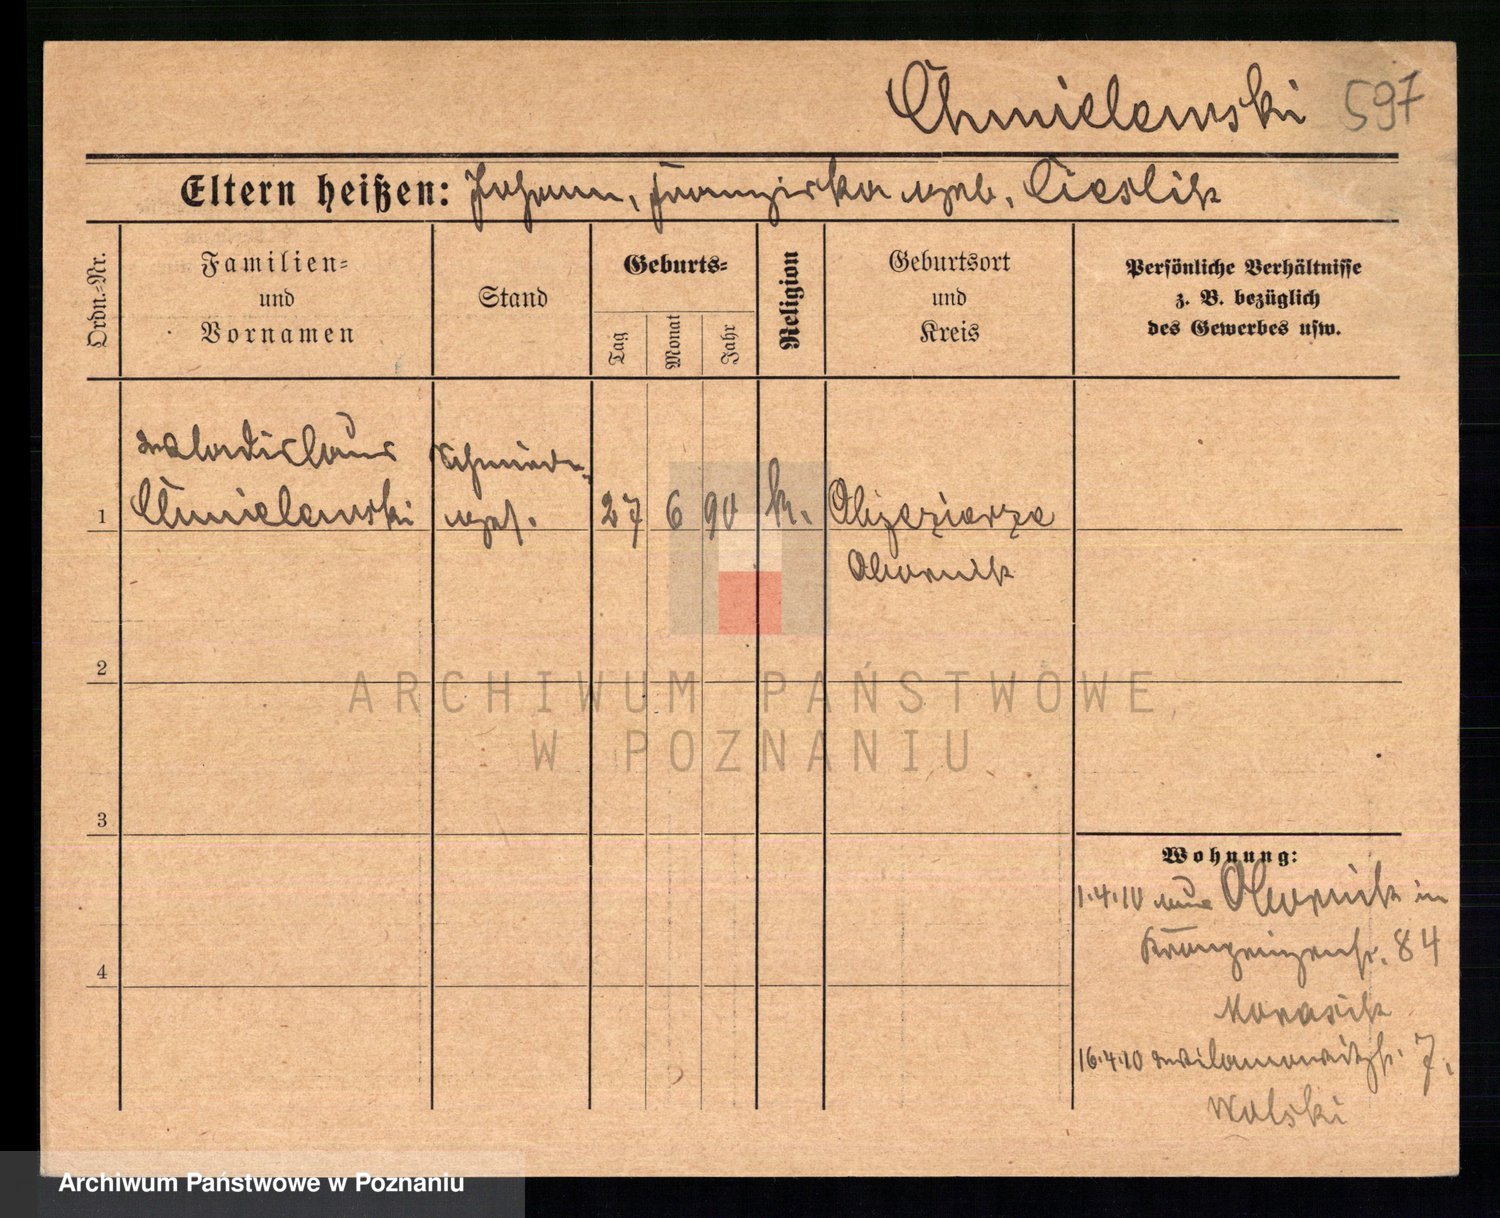 Chmielewski 597
Eltern heißen: Johann, Franziska geb. Cieslik
Ordn.-Nr.
Familien-
und
Vornamen
Stand
Geburts-
Tag
Monat
Jahr
Religion
Geburtsort
und
Kreis
Persönliche Verhältnisse
z. B. bezüglich
des Gewerbes usw.
Wladislaus
Chmielewski
Schmiede-
ges.
1
27 6 90 k.
Obornik
2
3
4
Wohnung:
1.4.10 aus Obornik in
Kronprinzenstr. 84
Morasik
16.4.10 Wilamowitzstr. 7.
Wolski
ARCHIWUM PAŃSTWOWE
W POZNANIU
Archiwum Państwowe w Poznaniu